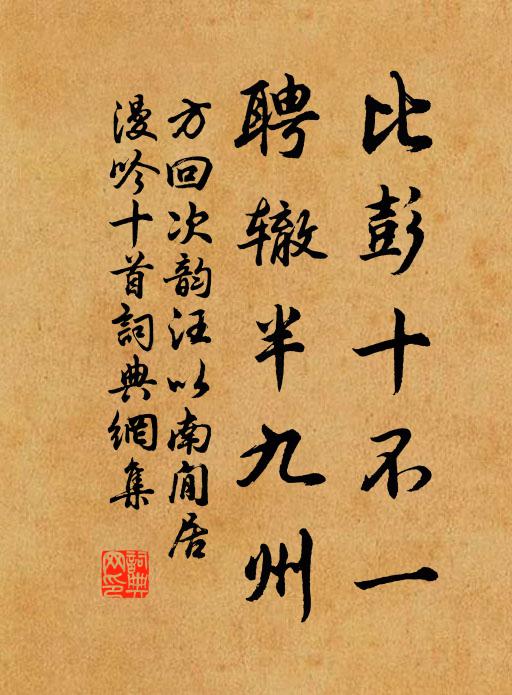 比彭十不一
聘辙半九州
方回次韵汪以南闲居
漫吟十首詞典網集
詞典网印